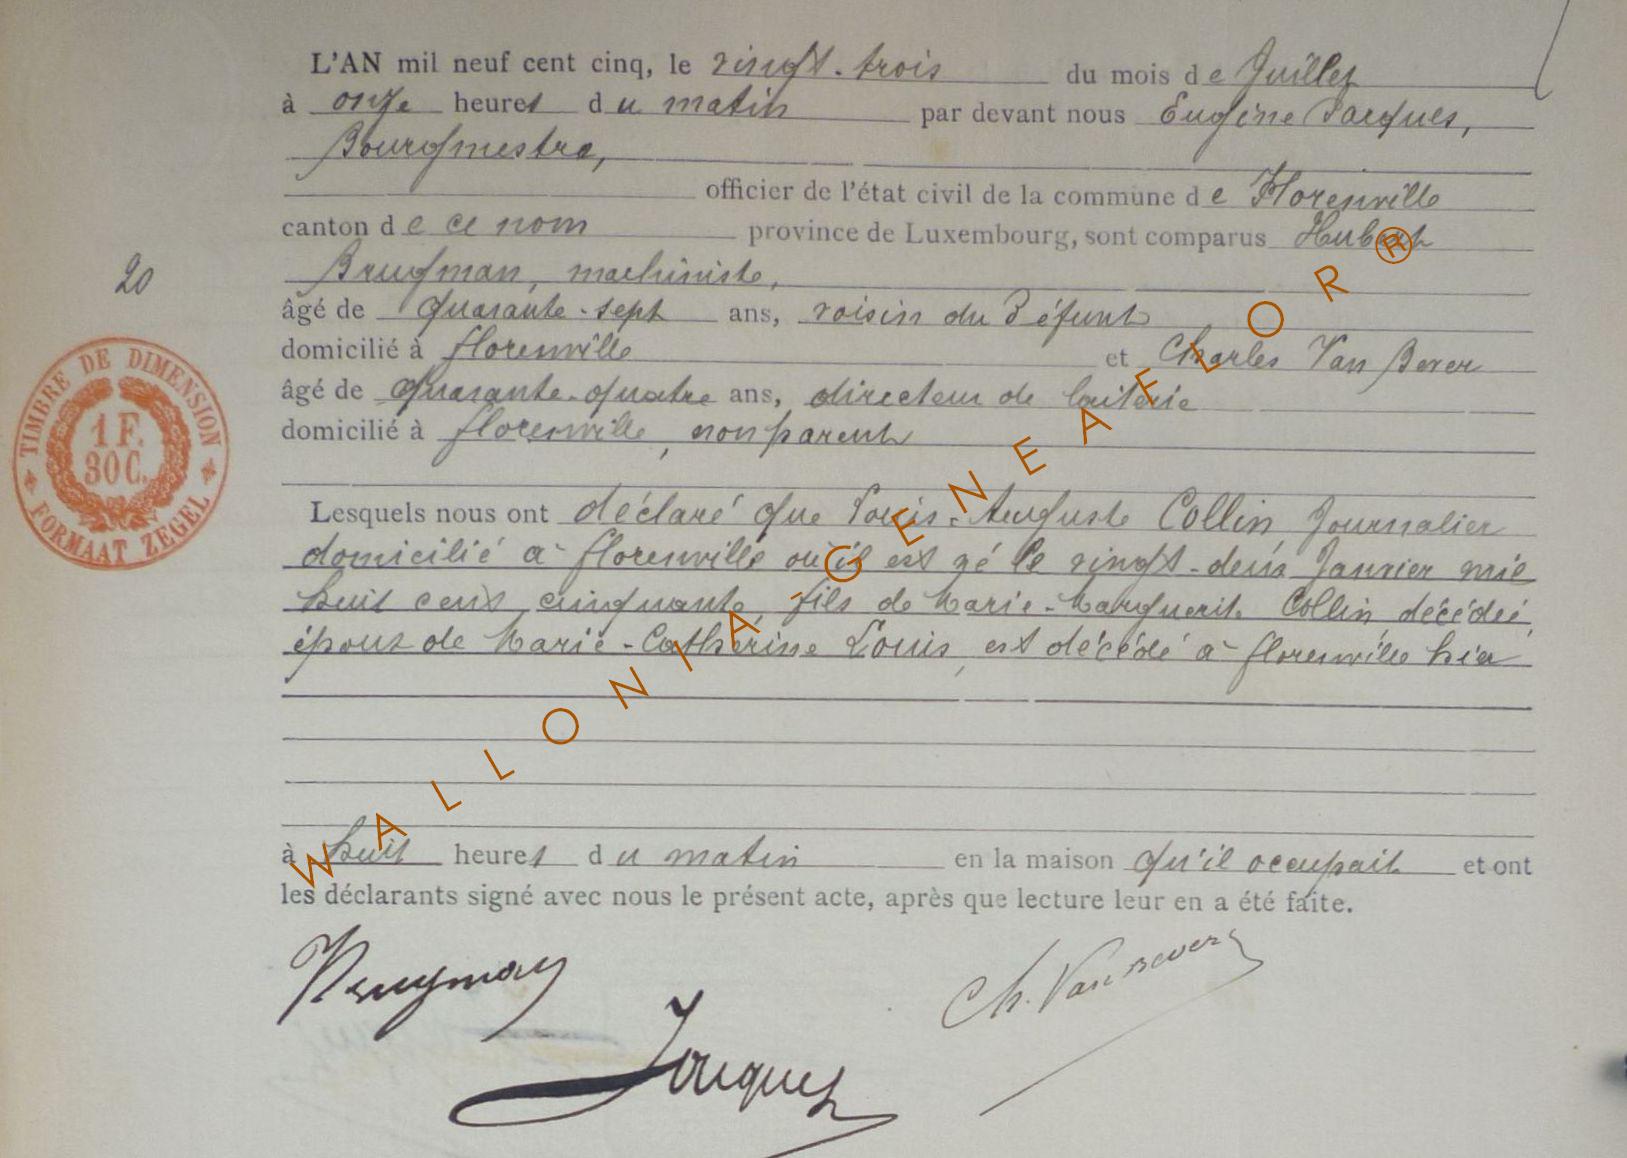 L'AN mil neuf cent cinq, le vingt-trois du mois de Juillet
à onze heures du matin par devant nous Eugène Jacques,
Bourgmestre,
officier de l'état civil de la commune de Florenville
canton de ce nom province de Luxembourg, sont comparus Hubert
20
Brugman, machiniste,
âgé de quarante-sept ans, voisin du Défunt
domicilié à florenville et Charles Van Bever
âgé de quarante-quatre ans, directeur de laiterie
domicilié à florenville, non parent
TIMBRE DE DIMENSION
1 F.
30 C.
FORMAAT ZEGEL
Lesquels nous ont déclaré que Louis-Auguste Collin, Journalier
domicilié à florenville où il est né le vingt-deux Janvier mil
huit cent cinquante, fils de Marie-Marguerite Collin décédée,
époux de Marie-Catherine Louis, est décédé à florenville hier
à huit heures du matin en la maison qu'il occupait et ont
les déclarants signé avec nous le présent acte, après que lecture leur en a été faite.
Brugman
Ch. Van Bever
Jacques
WALLONIA-GENEAFLOR®